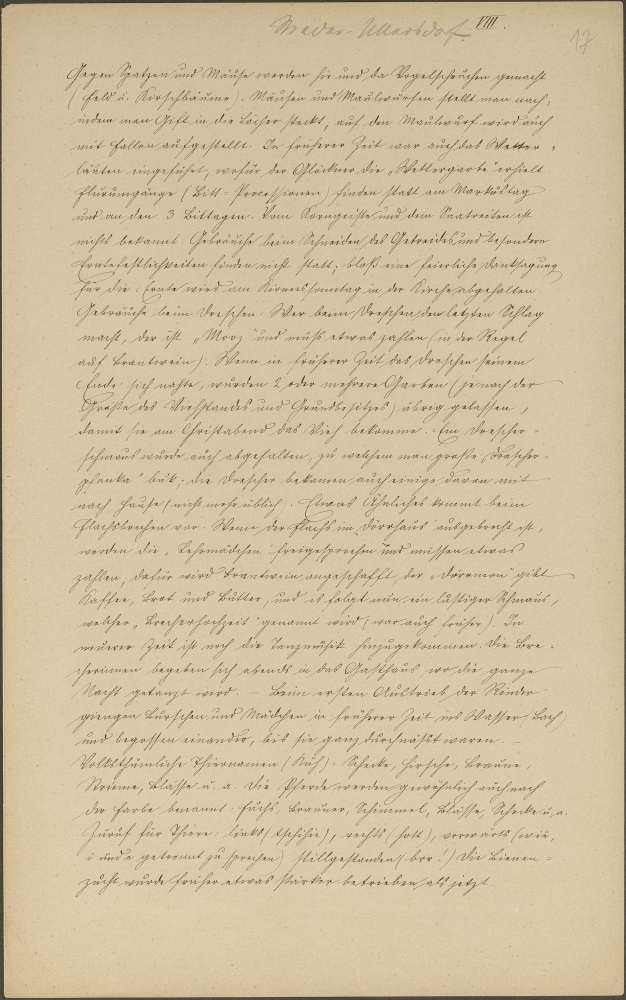 Nieder-Ullersdorf. VIII.
17
Gegen Spatzen und Mäuse werden hie und da Vogelscheuchen gemacht
(Feld u. Kirschbäume). Mäusen und Maulwürfen stellt man nach,
indem man Gift in die Löcher steckt, auf den Maulwurf wird auch
mit Fallen aufgestellt. In früherer Zeit war auch das Wetter-
läuten eingeführt, wofür der Glöckner die „Wettergarbe" erhielt
Flurumgänge (Bitt-Processionen) finden statt am Markustag
und an den 3 Bittagen. Vom Korngeiste und dem Saatreiten ist
nichts bekannt. Gebräuche beim Schneiden des Getreides und besondere
Erntefestlichkeiten finden nicht statt; bloß eine feierliche Danksagung
für die Ernte wird am Kirmessonntag in der Kirche abgehalten.
Gebräuche beim Dreschen: Wer beim Dreschen den letzten Schlag
macht, der ist „Mooz" und muß etwas zahlen (in der Regel
auf Brantwein). Wenn in früherer Zeit das Dreschen seinem
Ende sich nahte, wurden 2 oder mehrere Garben (je nach der
Größe des Viehstandes und Grundbesitzes) übrig gelassen,
damit sie am Christabend das Vieh bekomme. Ein Drescher-
schmaus wurde auch abgehalten, zu welchem man große
buk; die Drescher bekamen auch einige davon mit
nach Hause (nicht mehr üblich). Etwas Ähnliches kommt beim
Flachsbrechen vor. Wenn der Flachs im „Dörrhaus" ausgebrecht ist,
werden die „Lehrmädchen" freigesprochen und müssen etwas
zahlen, dafür wird Brantwein angeschafft der gibt
Kaffee, Brot und Butter, und es folgt nun ein lustiger Schmaus,
welcher „Brecherhochzeit" genannt wird (war auch früher). In
neuerer Zeit ist noch die Tanzmusik hinzugekommen. Die Bre-
cherinnen begeben sich abends in das Gasthaus wo die ganze
Nacht getanzt wird. – Beim ersten Austrieb der Rinder
giengen Burschen und Mädchen in früherer Zeit ins Wasser (Bach)
und begossen einander, bis sie ganz durchnäßt waren.
Volksthümliche Thiernamen (Kuh): Schecke, Hirsche, Braune,
Blässe u. a. Die Pferde werden gewöhnlich auch nach
der Farbe benannt: Fuchs, Brauner, Schimmel, Blässe, Schecke u. a.
Zuruf für Thiere: links , rechts (hott), vorwärts (wie,
i und e getrennt zu sprechen) stillgestanden (brr!) Die Bienen-
zucht wurde früher etwas stärker betrieben, als jetzt.